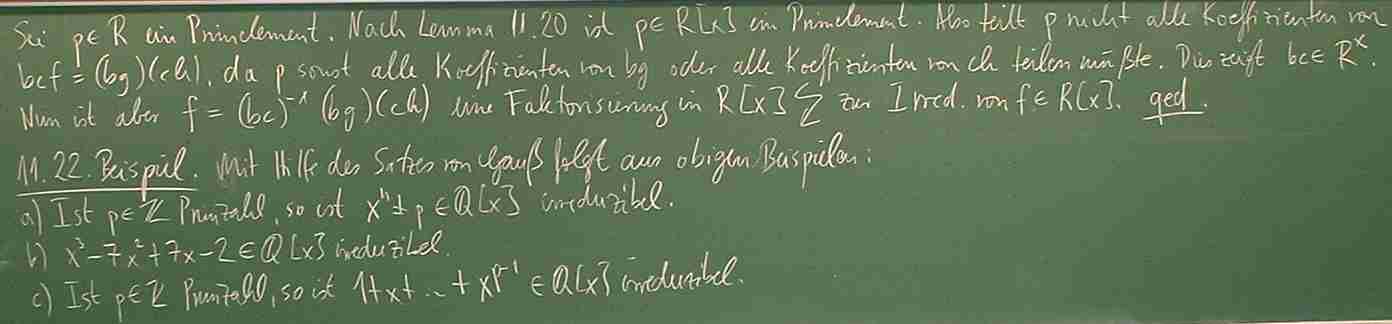 Sei p∈R ein Primelement. Nach Lemma 11.20 ist p∈R[x] ein Primelement. Also teilt p nicht alle Koeffizienten von
bcf = (bg)(ch), da p sonst alle Koeffizienten von bg oder alle Koeffizienten von ch teilen müßte. Dies zeigt bc∈R^x.
Nun ist aber f = (bc)^-1 (bg)(ch) eine Faktorisierung in R[x] ↯ zur Irred. von f∈R[x]. qed.
11.22. Beispiel. Mit Hilfe des Satzes von Gauß folgt aus obigen Beispielen:
a) Ist p∈ℤ Primzahl, so ist x^n ± p ∈ ℚ[x] irreduzibel.
b) x^3-7x^2+7x-2 ∈ ℚ[x] irreduzibel.
c) Ist p∈ℤ Primzahl, so ist 1+x+...+x^p-1 ∈ ℚ[x] irreduzibel.